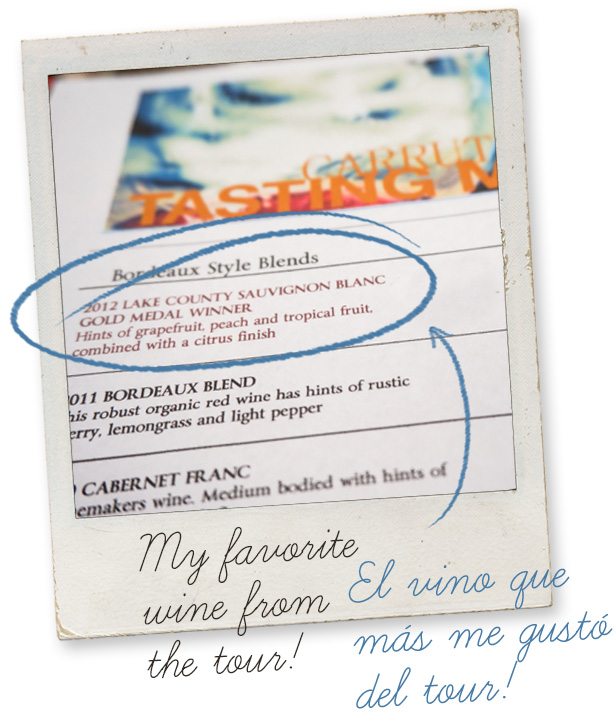 CARRUT
TASTING M
Bordeaux Style Blends
2012 LAKE COUNTY SAUVIGNON BLANC
GOLD MEDAL WINNER
Hints of grapefruit, peach and tropical fruit,
combined with a citrus finish
011 BORDEAUX BLEND
his robust organic red wine has hints of rustic
erry, lemongrass and light pepper
CABERNET FRANC
emakers wine. Medium bodied with hints of
My favorite
wine from
the tour!
El vino que
más me gustó
del tour!